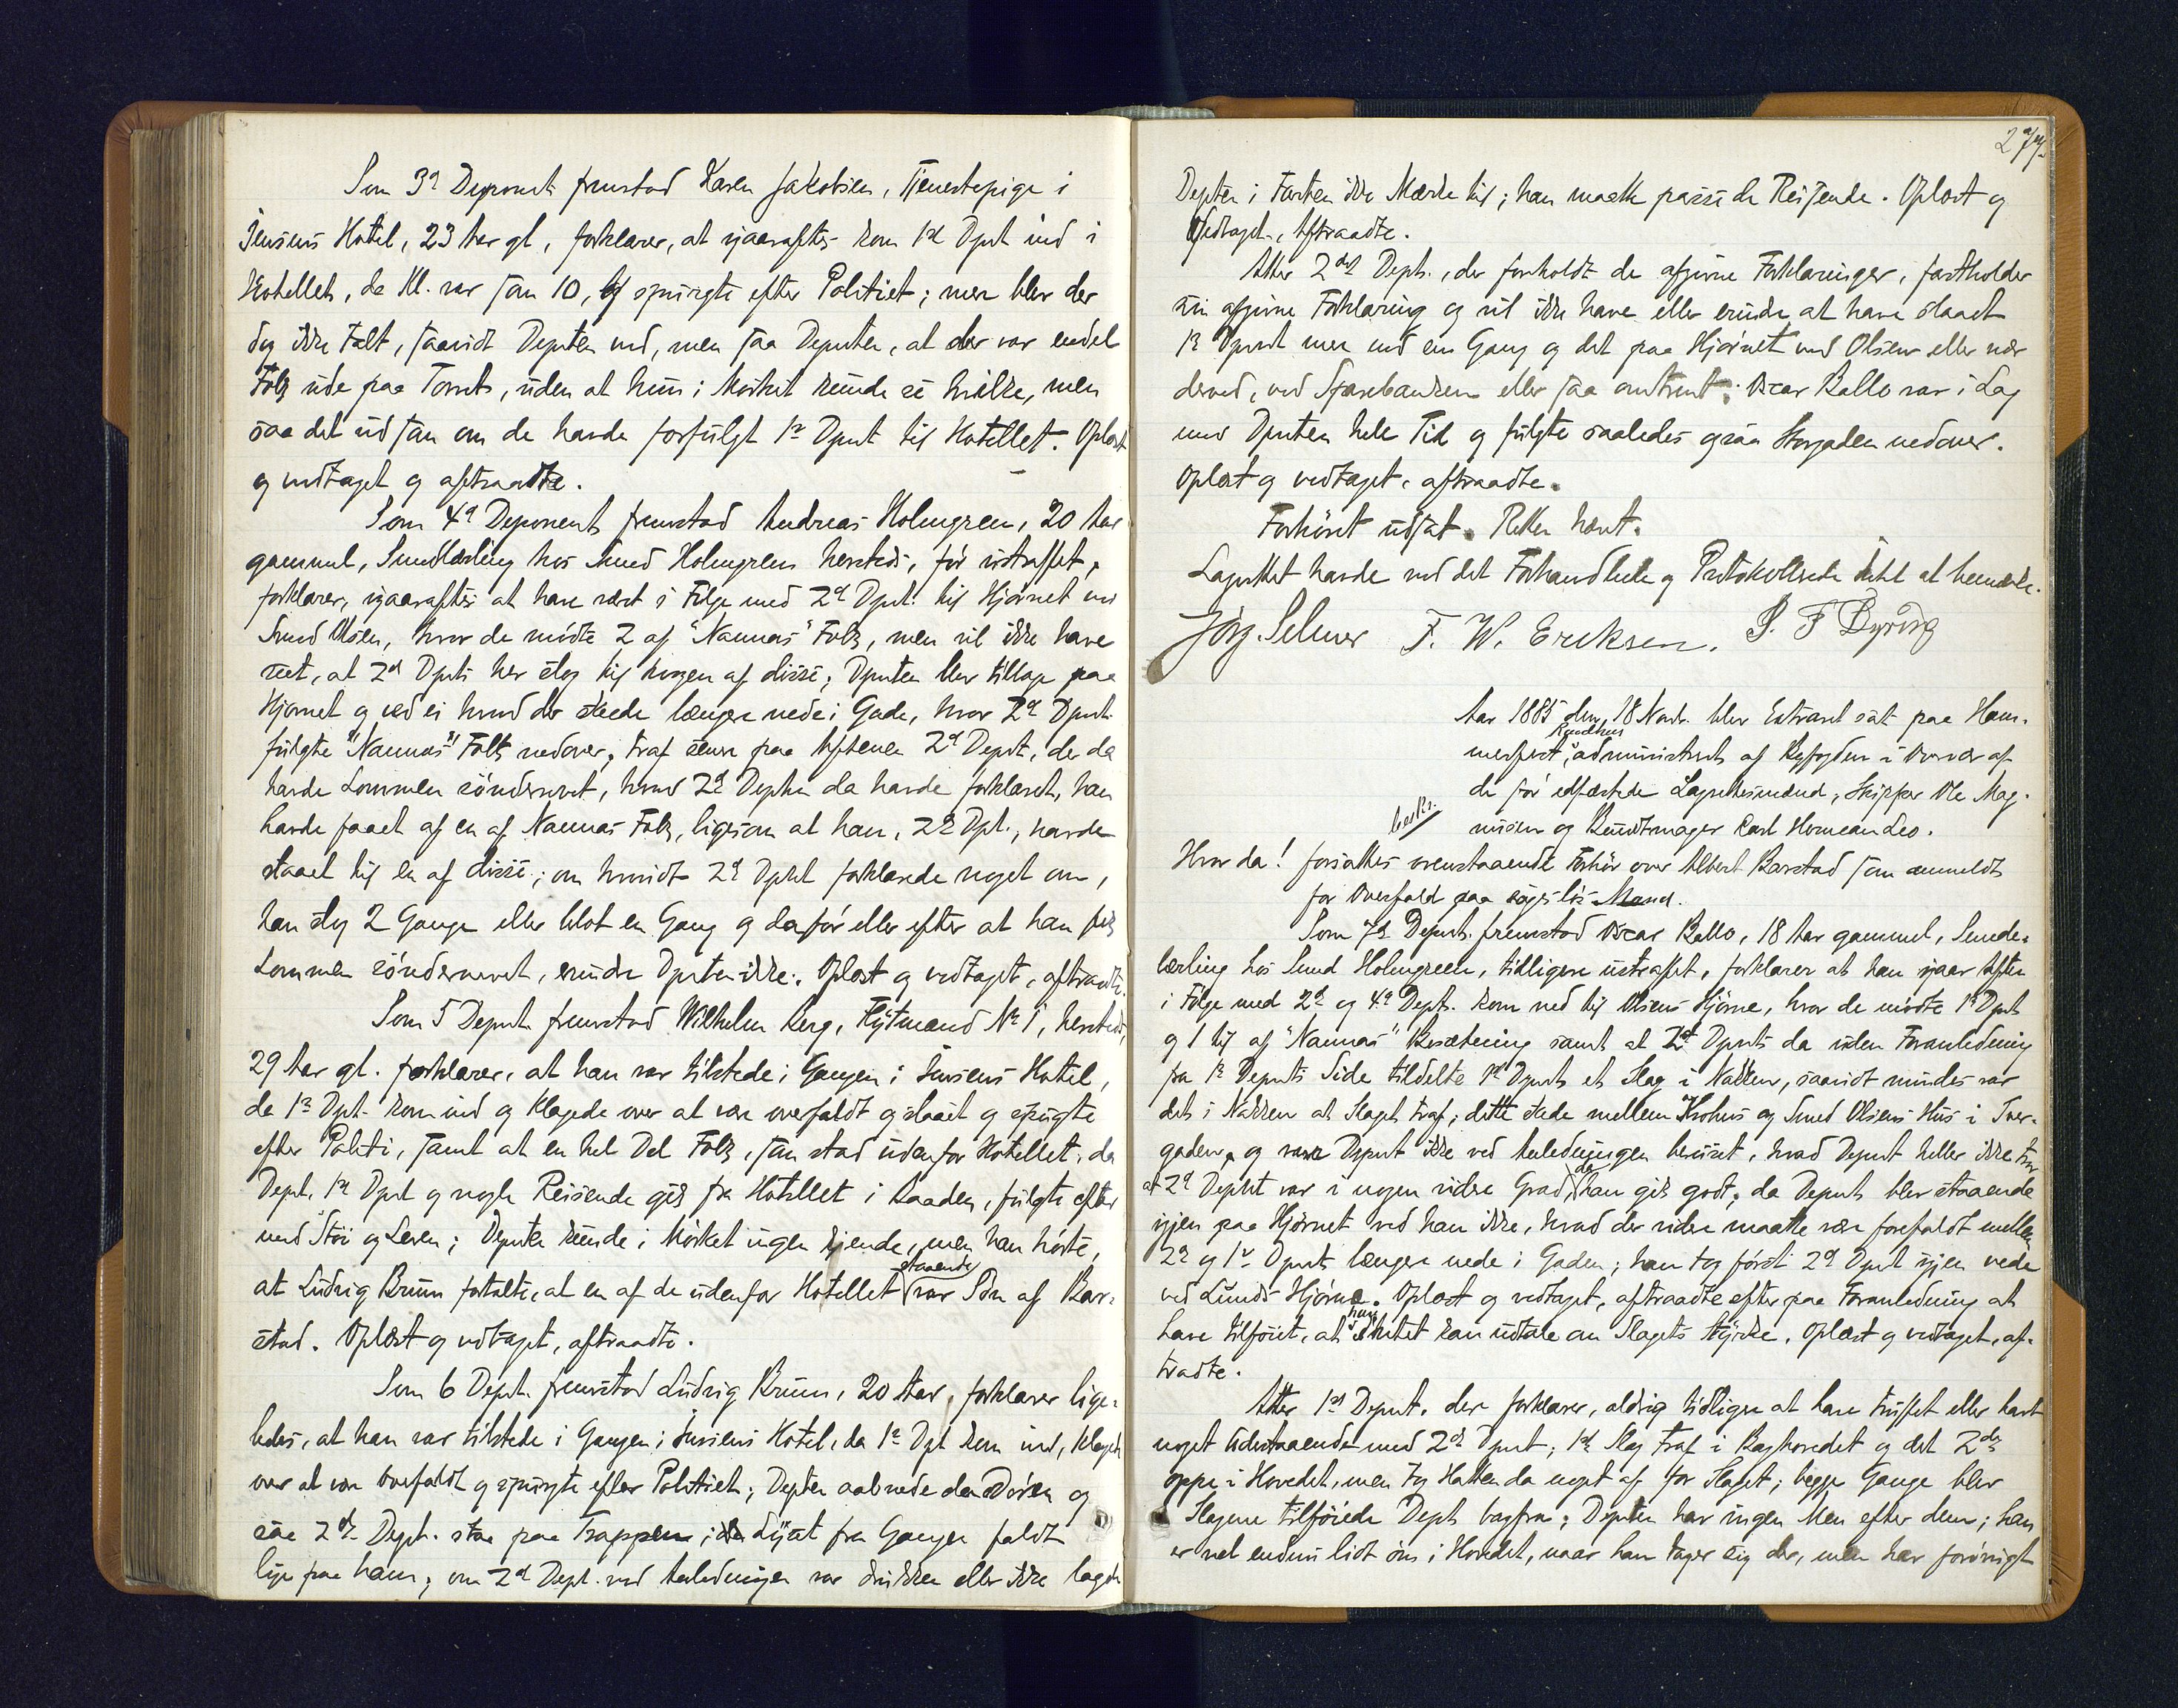 Som 3d Deponent fremstod Karen Jakobsen, Tjenestepige i
Jensens Hotel, 23 Aar gl., forklarer, at igaaraftes kom 1ste Dpnt ind i
Hotellet, da Kl. var saa 10, og spurgte efter Politiet; mere blev der
dog ikke talt, saavidt Depnten ved, men saa Deponten, at der var endel
Folk ude paa Torvet, uden at hun i Mørket kunde se hvilke, men
saa det ud som om de havde forfulgt 1ste Dpnt til Hotellet. Oplæst
og vedtaget og aftraadte.
Som 4de Deponent fremstod Andreas Holmgren, 20 Aar
gammel, Smedlærling hos Smed Holmgren hersteds, før ustraffet,
forklarer, igaaraftes at have været i Følge med 2d Dpnt. til Hjørnet ved
Smed Olsen, hvor de mødte 2 af "Nannas" Folk, men vil ikke have
seet, at 2d Dpnt her slog til nogen af disse; Dpnten blev tilbage paa
Hjørnet og ved ei hvad der skede længere nede i Gade, hvor 2d Dpnt.
fulgte "Nannas" Folk nedover, traf senere paa Aftenen 2d Depnt, der da
havde Lommen sønderrevet, hvad 2d Depten da havde forklaret, han
havde faaet af en af Nannas Folk, ligesom at han, 2d Dpt., havde
slaaet til en af disse; om hvorvidt 2d Dptet forklarede noget om,
han slog 2 Gange eller blot en Gang og da før eller efter at han fik
Lommen sønderrevet, erindrer Dpnten ikke. Oplæst og vedtaget, aftraadte.
Som 5 Depnt fremstod Wilhelm Berg, Flytmand No 1, hersteds,
29 Aar gl. forklarer, at han var tilstede i Gangen i Jensens Hotel,
da 1ste Dpt. kom ind og klagede over at være overfaldt og slaaet og spurgte
efter Politi, samt at en hel Del Folk, som stod udenfor Hotellet, da
Dept. 1ste Dpnt og nogle Reisende gik fra Hotellet i Baaden, fulgte efter
med Støi og Leven; Depnten kunde i Mørket ingen kjende, men han hørte,
at Ludvig Bruun fortalte, at en af de udenfor Hotellet staaende var Søn af Bar-
stad. Oplæst og vedtaget, aftraadte.
Som 6 Depnt. fremstod Ludvig Bruun, 20 Aar, forklarer lige-
ledes, at han var tilstede i Gangen i Jensens Hotel, da 1ste Dpt kom ind, klaged
over at være overfaldt og spurgte efter Politiet; Depten aabnede da Døren og
saa 2d Dept. staa paa Trappen; da Lyset fra Gangen faldt
lige paa ham; om 2d Dept. ved Anledningen var drukken eller ikke lagde
Depten i Farten ikke Mærke til; han maatte passe de Reisende. Oplæst og
Vedtaget, Aftraadte.
Atter 2det Dept., der foreholdt de afgivne Forklaringer, fastholder
sin afgivne Forklaring og vil ikke have eller erindre at have slaaet
1ste Dpnt mer end en Gang og det paa Hjørnet ved Olsen eller nær
derved, ved Sparebanken eller saa omtrent; Oscar Ballo var i Lag
med Dpnten hele Tid og fulgte saaledes ogsaa Storgaden nedover.
Oplæst og vedtaget, aftraadte.
Forhøret udsat. Retten hævet.
Lagrettet havde ved det Forhandlede og Protokollerede intet at bemærke.
Jörg. Selmer F. W. Eriksen. P. F Dyring
Aar 1885 den 18 Novbr. blev Extraret sat paa Ham-
merfest Raadhus, administreret af Byfogden i Overvær af
de før edfæstede Lagrettesmænd, Skipper Ole Mag-
nusen og Bundtmager Carl Herman Leo.
beskr.
Hvor da! forsattes ovenstaaende Forhør over Albert Barstad som anmeldt
for Overfald paa sagesløs Mand.
Som 7d Depnt. fremstod Oscar Ballo, 18 Aar gammel, Smede-
lærling hos Smed Holmgreen, tidligere ustraffet, forklarer at han igaar Aften
i Følge med 2d og 4d Dept. kom ned til Olsens Hjørne, hvor de mødte 1ste Dpnt
og 1 til af "Nannas" Besætning samt at 2d Dpnt da uden Foranledning
fra 1ste Depnts Side tildelte 1ste Dpnt et Slag i Nakken, saavidt mindes var
det i Nakken at Slaget traf; dette skede mellem Krohns og Smed Olsens Hus i Tver-
gaden, og var Depnt ikke ved Anledningen beruset, hvad Depnt heller ikke tror
at 2d Deptnt var i nogen videre Grad, da han gik godt; da Depnt blev staaende
igjen paa Hjørnet ved han ikke, hvad der videre maatte være forefaldt mellem
2d og 1ste Dpnt længere nede i Gaden; han tog først 2d Dpnt igjen nede
ved Lunds Hjørne. Oplæst og vedtaget, aftraadte efter paa Foranledning at
have tilføiet, at han Intet kan udtale om Slagets Styrke. Oplæst og vedtaget, af-
traadte.
Atter 1ste Depnt. der forklarer, aldrig tidligere at have truffet eller havt
noget udestaaende med 2det Dpnt; 1ste Slag traf i Baghovedet og det 2det
oppe i Hovedet, men tog Hatten da noget af for Slaget; begge Gange blev
Slagene tilføiede Dept bagfra; Depnten har ingen Men efter dem; han
er vel endnu lidt øm i Hovedet, naar han tager sig der, men har forøvrigt